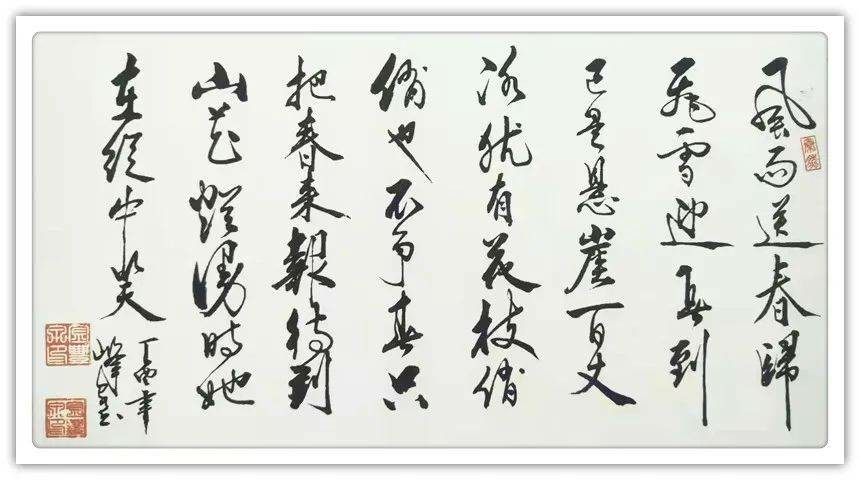 風雨送春歸
飛雪迎春到
已是懸崖百丈
冰犹有花枝俏
俏也不争春只
把春来報待到
山花爛漫时她
在丛中笑
丁酉年
峰